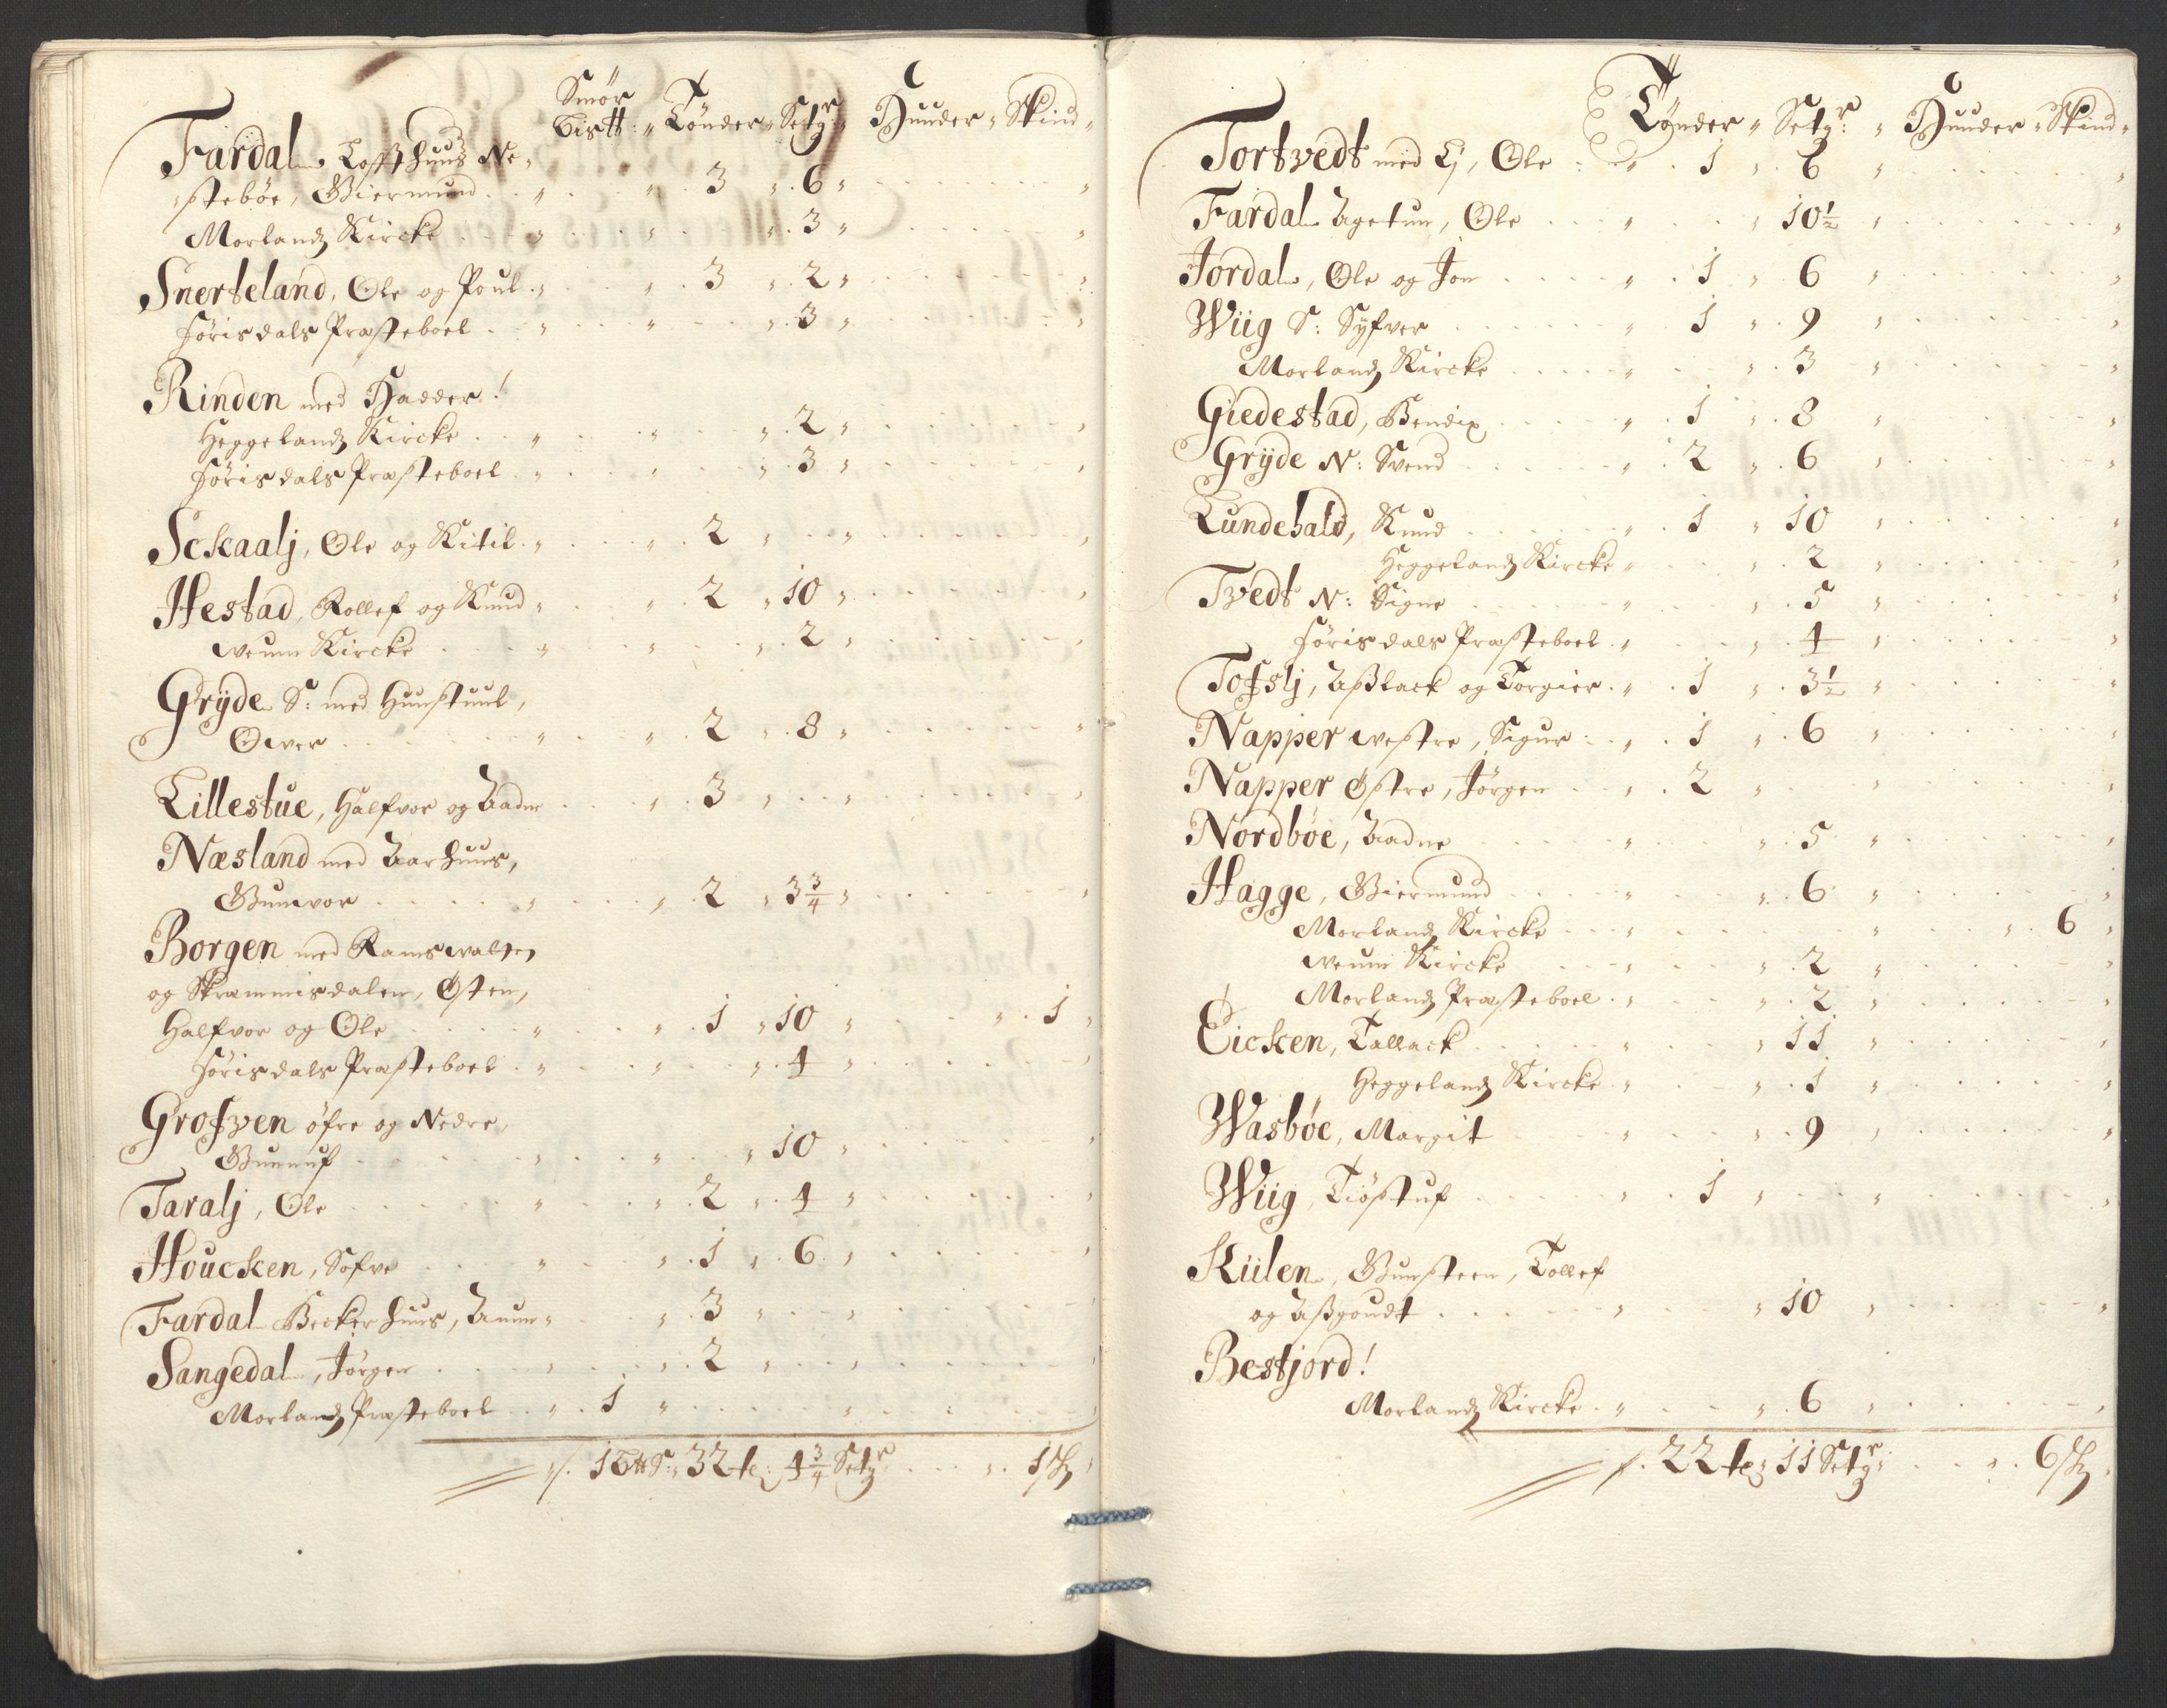 Smör
Bistt: Tönder Setgr: Huuder Skind
Fardal Loffthuus Ne-
stebøe, Giermund 3 6
Morlandz Kircke 3
Snerteland, Ole og Poul 3 2
Hörisdals Præsteboel 3
Rinden med Hadder!
Heggelandz Kircke 2
Hörisdals Præsteboel 3
Sckaalj, Ole og Kitil 2
Hestad, Rollef og Knud 2 10
weum Kircke 2
Gryde S: med Huustuul,
Ower 2 8
Lillestue, Halfvor og Aadne 3
Næsland med Aarhuus,
Gunwor 2 3¾
Borgen med Ramswalten
og Skrammisdalen, Østen,
Halfvor og Ole 1 10 1
Hörisdals Præsteboel 4
Grofven öfre og Nedre,
Gunnuf 10
Taralj, Ole 2 4
Houcken, Sofve 1 6
Fardal Beckerhuus, Aanun 3
Sangedal, Jörgen 2
Morlandz Præsteboel 1
1 Btt S: 32 te: 4¾ Setgr 1 sk
Tönder Setgr: Huuder Skind
Tortvedt med Ej, Ole 1 6
Fardal Agetun, Ole 10½
Jordal, Ole og Jon 1 6
Wiig S: Syfver 1 9
Morlandz Kircke 3
Giedestad, Bendix 1 8
Gryde N: Svend 2 6
Lundevald, Knud 1 10
Heggelandz Kircke 2
Tvedt N: Signe 5
Hörisdals Præsteboel 4
Tofslj, Aßlack og Torgier 1 3½
Napper westre, Sigur 1 6
Napper Østre, Jörgen 2
Nordbøe, Aadne 5
Hagge, Giermund 6
Morlandz Kircke 6
weum Kircke 2
Morlandz Præsteboel 2
Eicken, Tallack 11
Heggelandz Kircke 1
Wasbøe, Margit 9
Wiig, Tiöstuf 1
Kiilen, Gunsteen, Tollef
og Aßgoudt 10
Bestjord!
Morlandz Kircke 6
22 te: 11 Setgr 6 sk